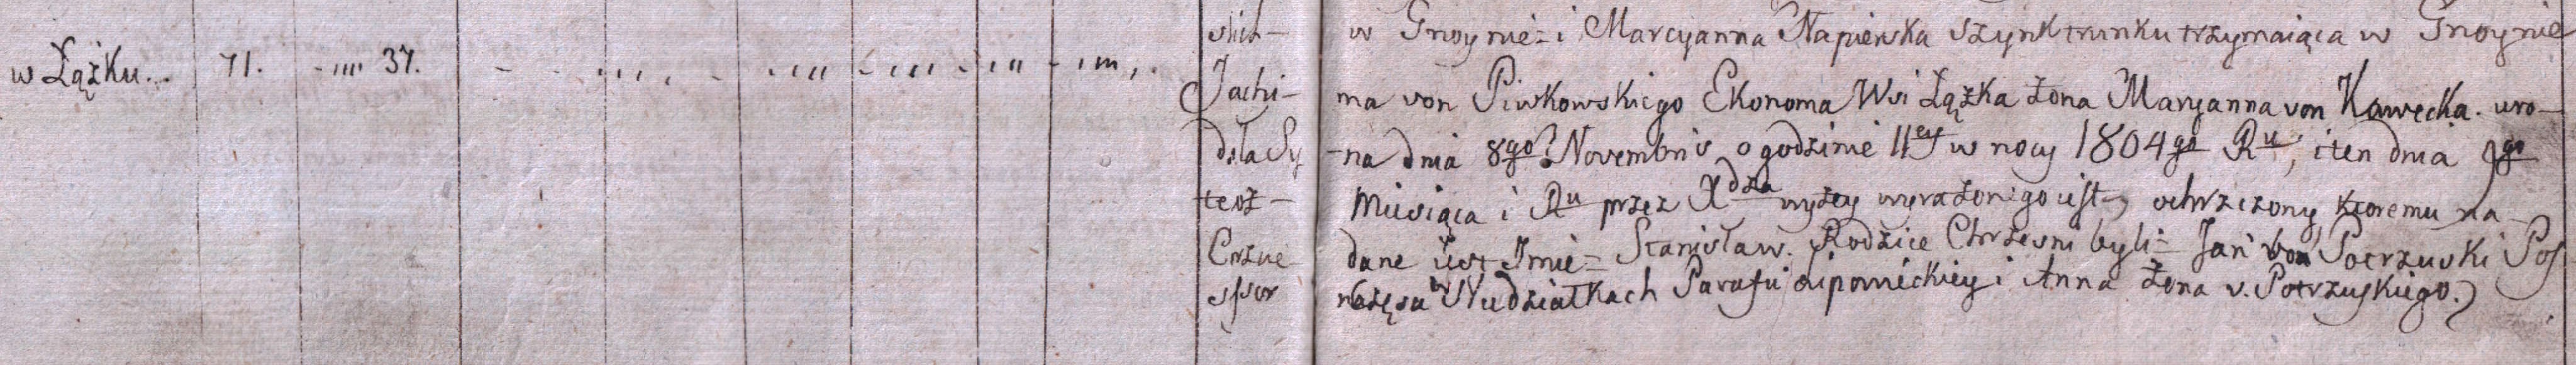 skich- w Gnoynie= i Marcyanna Napierska szynk trunku trzymaiąca w Gnoynie
w Łążku... 71. - ,,,, 37. - - ,,,, - ,,,, - ,,,, - ,,, - ,,, ,. Jachi-ma von Piwkowskiego Ekonoma Wsi Łążka żona Maryanna von Kawecka. uro-
dziła Sy-na dnia 8go Novembris o godzinie 11ey w nocy 1804go Ru, i ten dnia 9go
teoż- Miesiąca i Ru przez Xdza wyżey wyrażonego iest, ochrzczony ktoremu na-
dane iest Imie= Stanisław. Rodzice Chrzesni byli= Jan von Potrzuski Pos
sssor w Nudziałkach Parafii Lipowickiey i Anna żona v. Potrzuskiego.